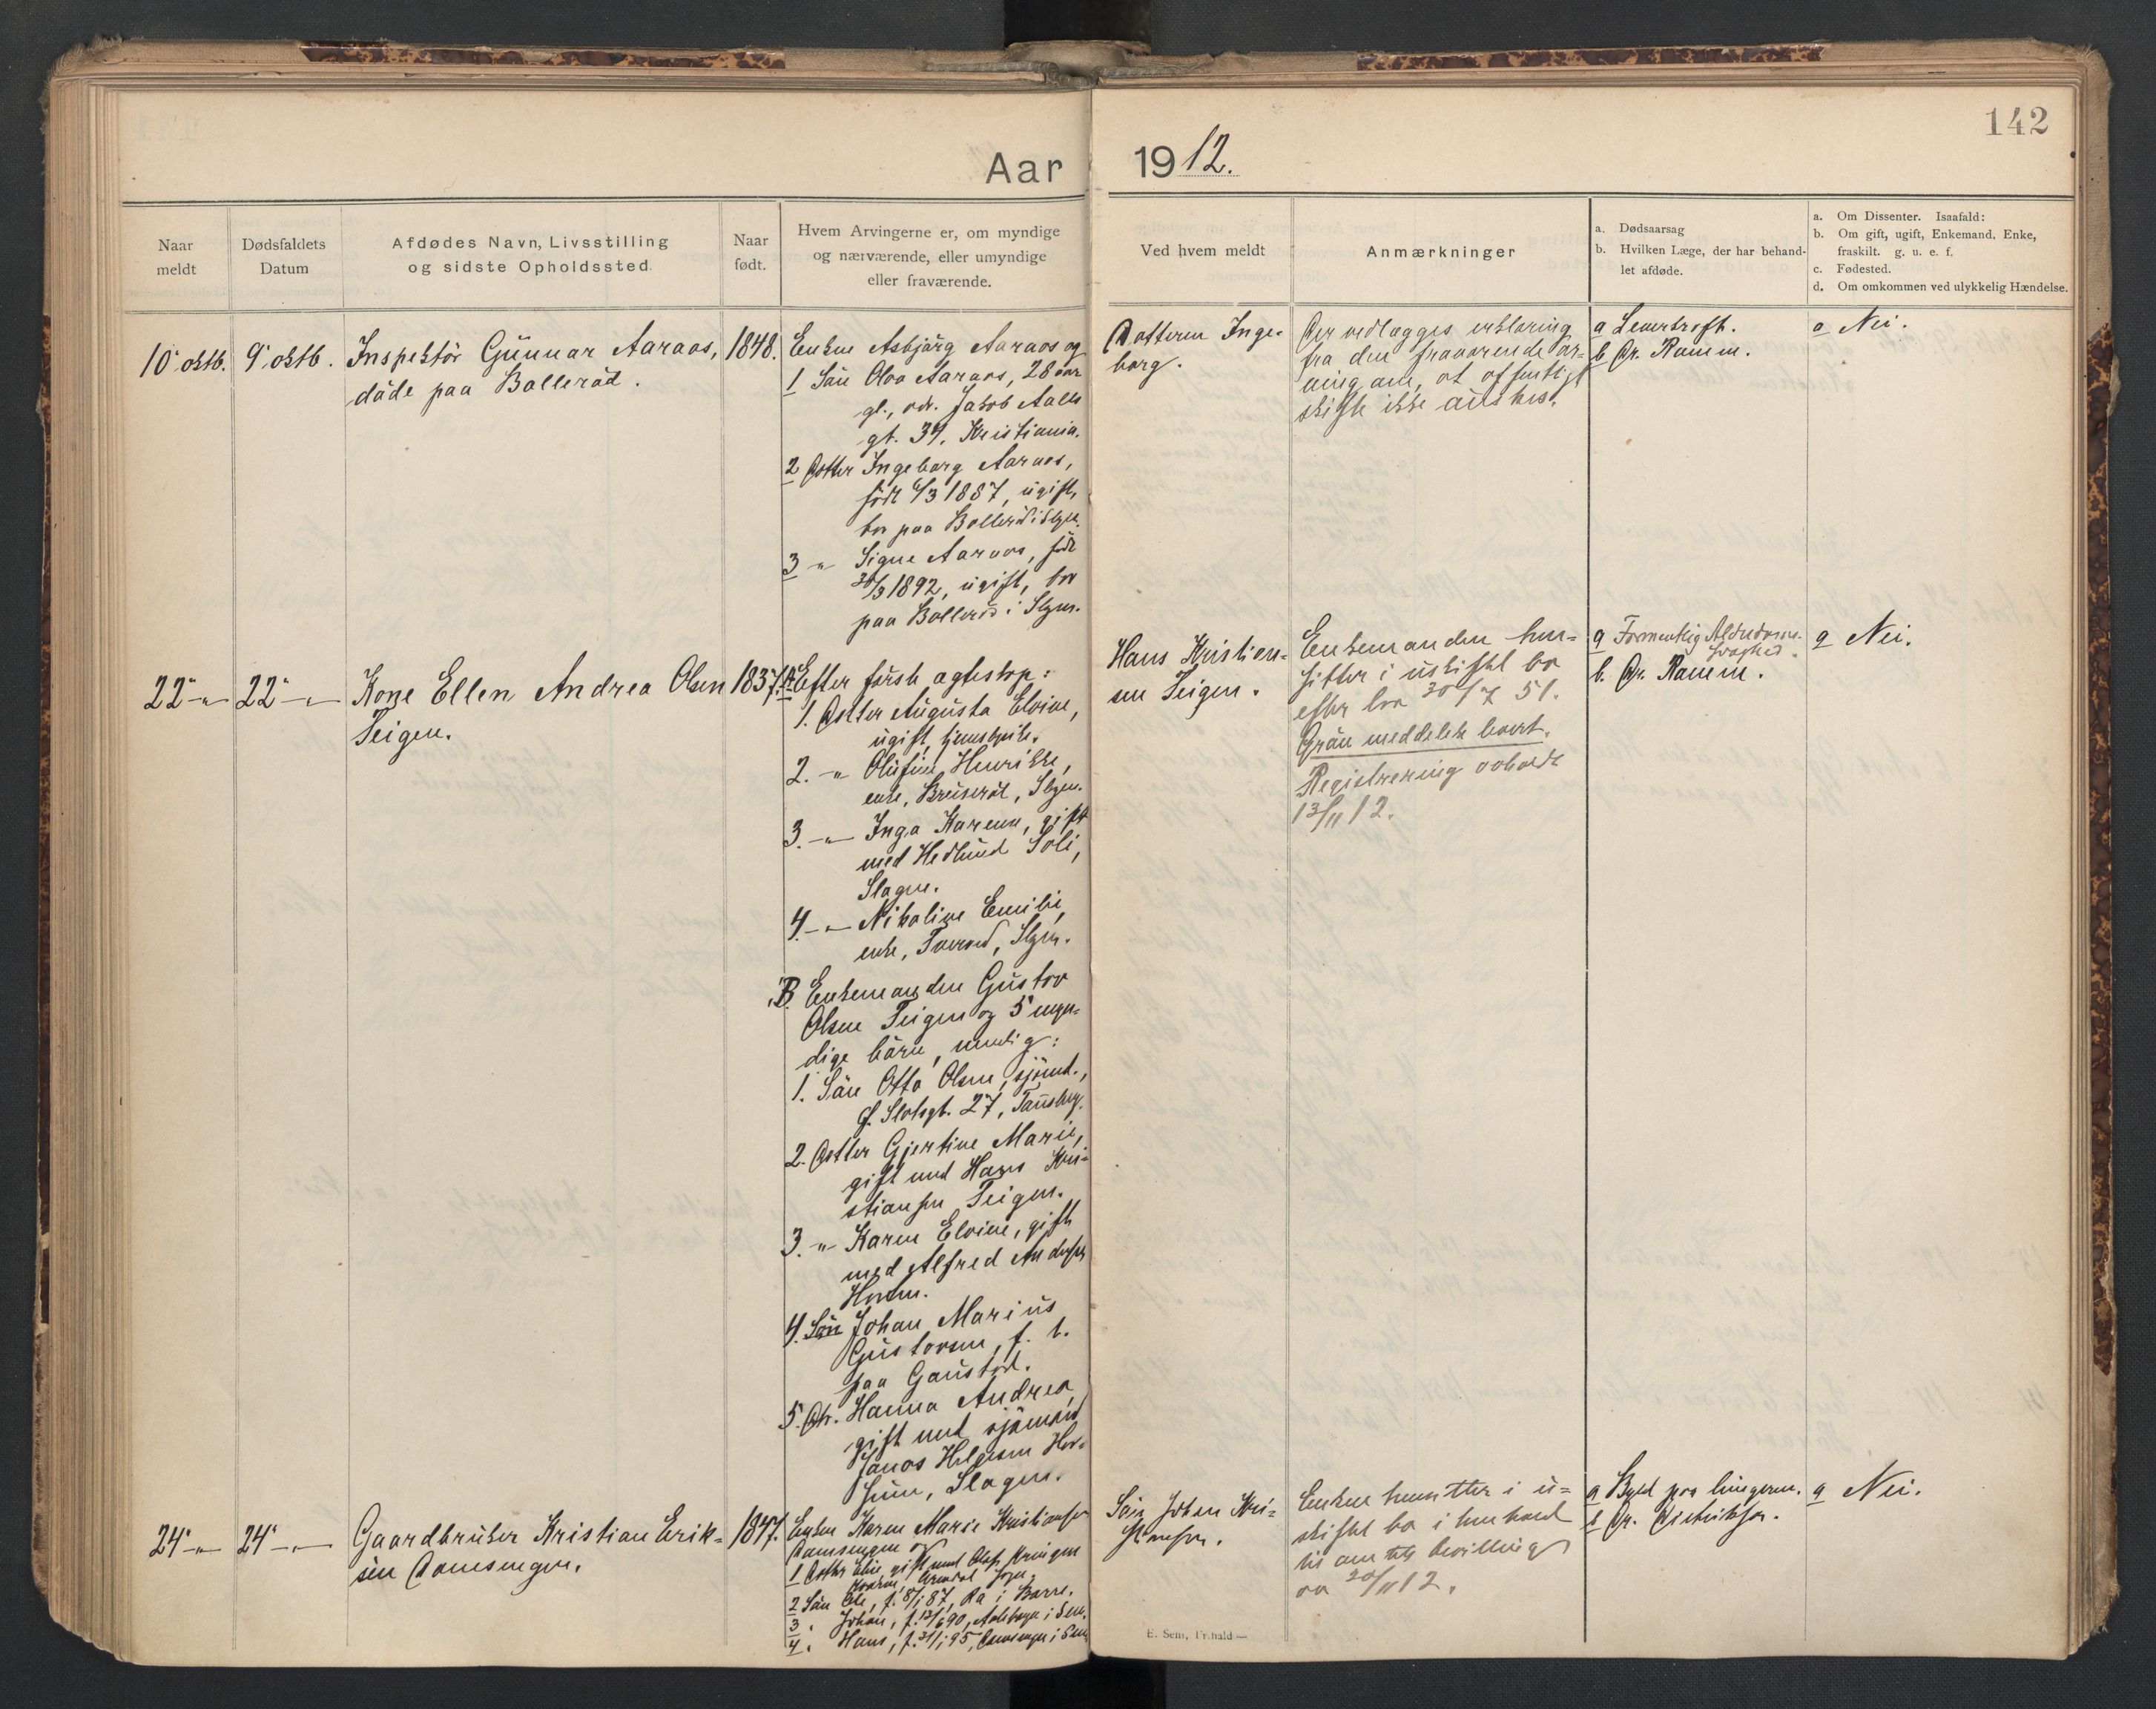 142
Aar 1912.
Naar
meldt
Dødsfaldets
Datum
Afdødes Navn, Livsstilling
og sidste Opholdssted
Naar
født.
Hvem Arvingerne er, om myndige
og nærværende, eller umyndige
eller fraværende.
Ved hvem meldt
Anmærkninger
a. Dødsaarsag
b. Hvilken Læge, der har behand-
let afdøde.
a. Om Dissenter. Isaafald:
b. Om gift, ugift, Enkemand, Enke,
fraskilt. g. u. e. f.
c. Fødested.
d. Om omkommen ved ulykkelig Hændelse.
10' oktb.
9' oktb.
Inspektör Gunnar Aaraas,
döde paa Balleröd.
1848.
Enken Asbjörg Aaraas og
1 Sön Olva Aaraas, 28 aar
gl., adr. Jakob Aalls
gt. 34, Kristiania.
2 Dotter Ingeborg Aaraas,
født 6/3 1887, ugift,
bor paa Balleröd i Slgn.
3 -"- Signe Aaraas, født
30/3 1892, ugift, bor
paa Balleröd i Slgn.
Datteren Inge-
borg.
Der vedlægges erklæring
fra den fraværende ar-
ving om, at offentligt
skifte ikke önskes.
a Leverkræft.
b Dr. Ramm.
a Nei.
22' -"-
22' -"-
Kone Ellen Andrea Olsen
Teigen.
1837.
A. Efter förste ægteskap:
1. Dotter Augusta Elvine,
ugift,
2. -"- Olufine Henrikke,
enke, Slgn.
3. -"- Inga Karenn, gift
med Hedlund Soli,
Slagen.
4. -"- Nikoline Emilie,
enke, Tverved, Slgn.
B. Enkemanden Gustav
Olsen Teigen og 5 myn-
dige börn, nemlig:
1. Sön Otto Olsen, sjömd.,
f. Slotsgt. 27, Tönsbrg.
2. Dotter Gjertine Marie,
gift med Hans Kri-
stiansen Teigen.
3. -"- Karen Elvine, gift
med Alfred Andersen
4. Sön Johan Marius
Gustavsen, f. t.
paa Gaustad.
5. Dtr. Hanna Andrea,
gift med sjömand
Janos Helgesen
Slagen.
Hans Kristian-
sen Teigen.
Enkemanden hen-
sitter i uskiftet bo
efter lov 30/7 51.
Grön meddelelse levert.
Registrering avholdt
13/11 12.
a Formentlig Alderdoms-
svaghed.
b. Dr. Ramm.
a Nei.
24' -"-
24' -"-
Gaardbruker Kristian Erik-
sen Damsengen.
1847.
Enken Karen Marie Kristiansen
Damsengen og
1 Dotter Elise, gift med Olaf Kringen
2 Sön Ole, f. 8/1 87, Rå i Borre.
3 " Johan, f. 12/6 90, i Sem.
4 " Hans, f. 31/1 95, Damsengen i Sem
Sön Johan Kri-
stiansen.
Enken hensitter i u-
skiftet bo i henhold
til amtets bevilling
av 20/11 12.
a Byld paa lungerne.
b Dr. Didriksen.
a Nei.
E. Sem, Fr.hald —